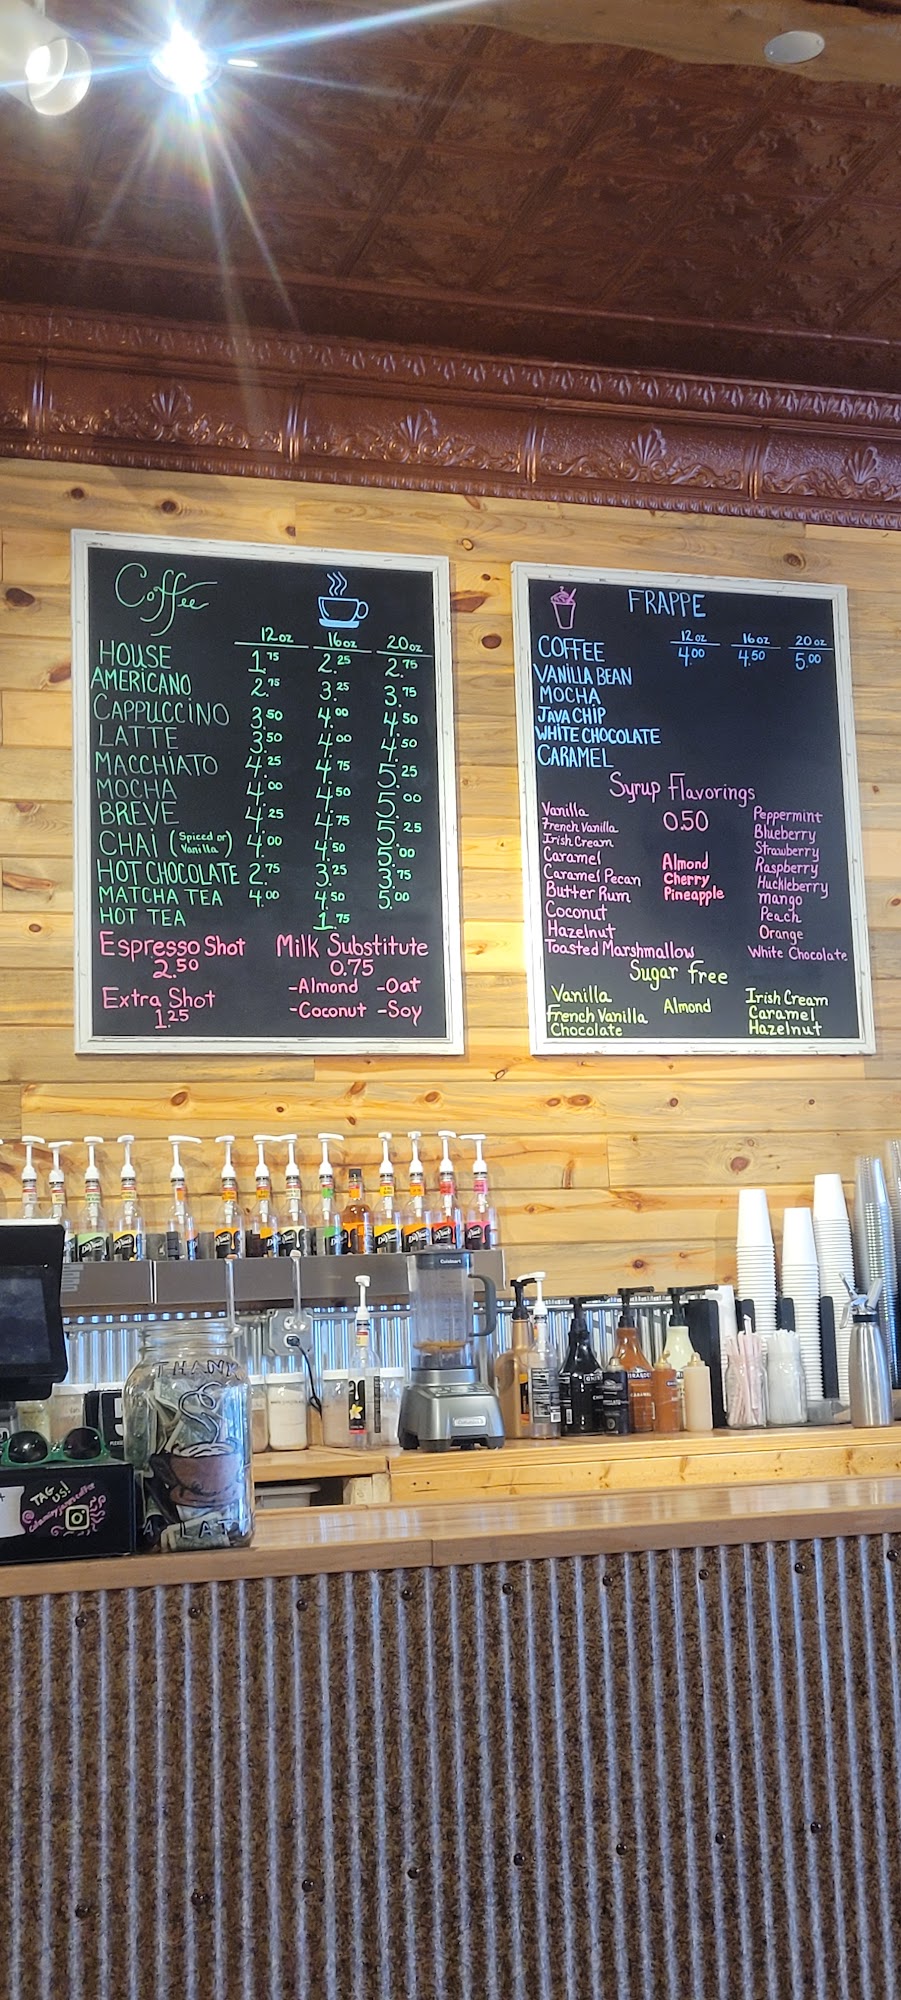 Coffee
12oz 16oz 20oz
HOUSE 1.75 2.25 2.75
AMERICANO 2.75 3.25 3.75
CAPPUCCINO 3.50 4.00 4.50
LATTE 3.50 4.00 4.50
MACCHIATO 4.25 4.75 5.25
MOCHA 4.00 4.50 5.00
BREVE 4.25 4.75 5.25
CHAI (Spiced or Vanilla) 4.00 4.50 5.00
HOT CHOCOLATE 2.75 3.25 3.75
MATCHA TEA 4.00 4.50 5.00
HOT TEA 1.75
Espresso Shot
2.50
Extra Shot
1.25
Milk Substitute
0.75
-Almond -Oat
-Coconut -Soy
FRAPPE
12oz 16oz 20oz
COFFEE 4.00 4.50 5.00
VANILLA BEAN
MOCHA
JAVA CHIP
WHITE CHOCOLATE
CARAMEL
Syrup Flavorings
0.50
Vanilla
French Vanilla
Irish Cream
Caramel
Caramel Pecan
Butter Rum
Coconut
Hazelnut
Toasted Marshmallow
Almond
Cherry
Pineapple
Peppermint
Blueberry
Strawberry
Raspberry
Huckleberry
mango
Peach
Orange
White Chocolate
Sugar Free
Vanilla
French Vanilla
Chocolate
Almond
Irish Cream
Caramel
Hazelnut
Cuisinart
THANK
A LAT
TAG
US!